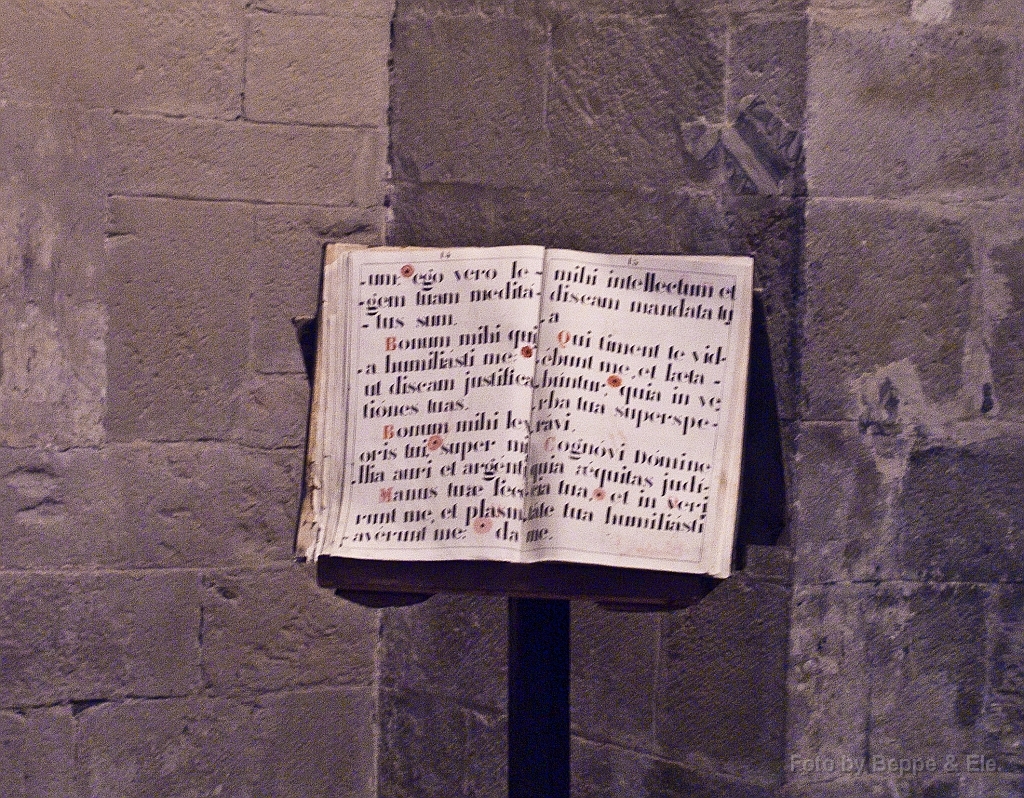 14
-um: ego vero le-
-gem tuam medita-
-tus sum.
Bonum mihi qui
-a humiliasti me:
ut discam justifica
tiónes tuas.
Bonum mihi lex
oris tui, super mi
-llia auri et argénti
Manus tuæ fece
runt me, et plasm
-avérunt me: da
15
mihi intellectum et
discam mandata tu
-a
Qui timent te vid-
ébunt me, et læta-
búntur: quia in ve
rba tua superspe-
rávi.
Cognóvi Dómine
quia æquitas judí-
cia tua, et in veri
táte tua humiliásti
me.
Foto by Beppe & Ele.